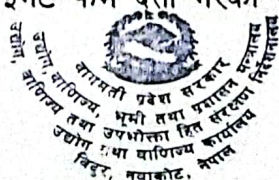 फर्म दर्ता गरेको
बागमती प्रदेश सरकार
उद्योग, वाणिज्य, भूमि तथा प्रशासन मन्त्रालय
वाणिज्य तथा उपभोक्ता हित संरक्षण निर्देशनालय
उद्योग तथा वाणिज्य कार्यालय
विदुर, नुवाकोट, नेपाल